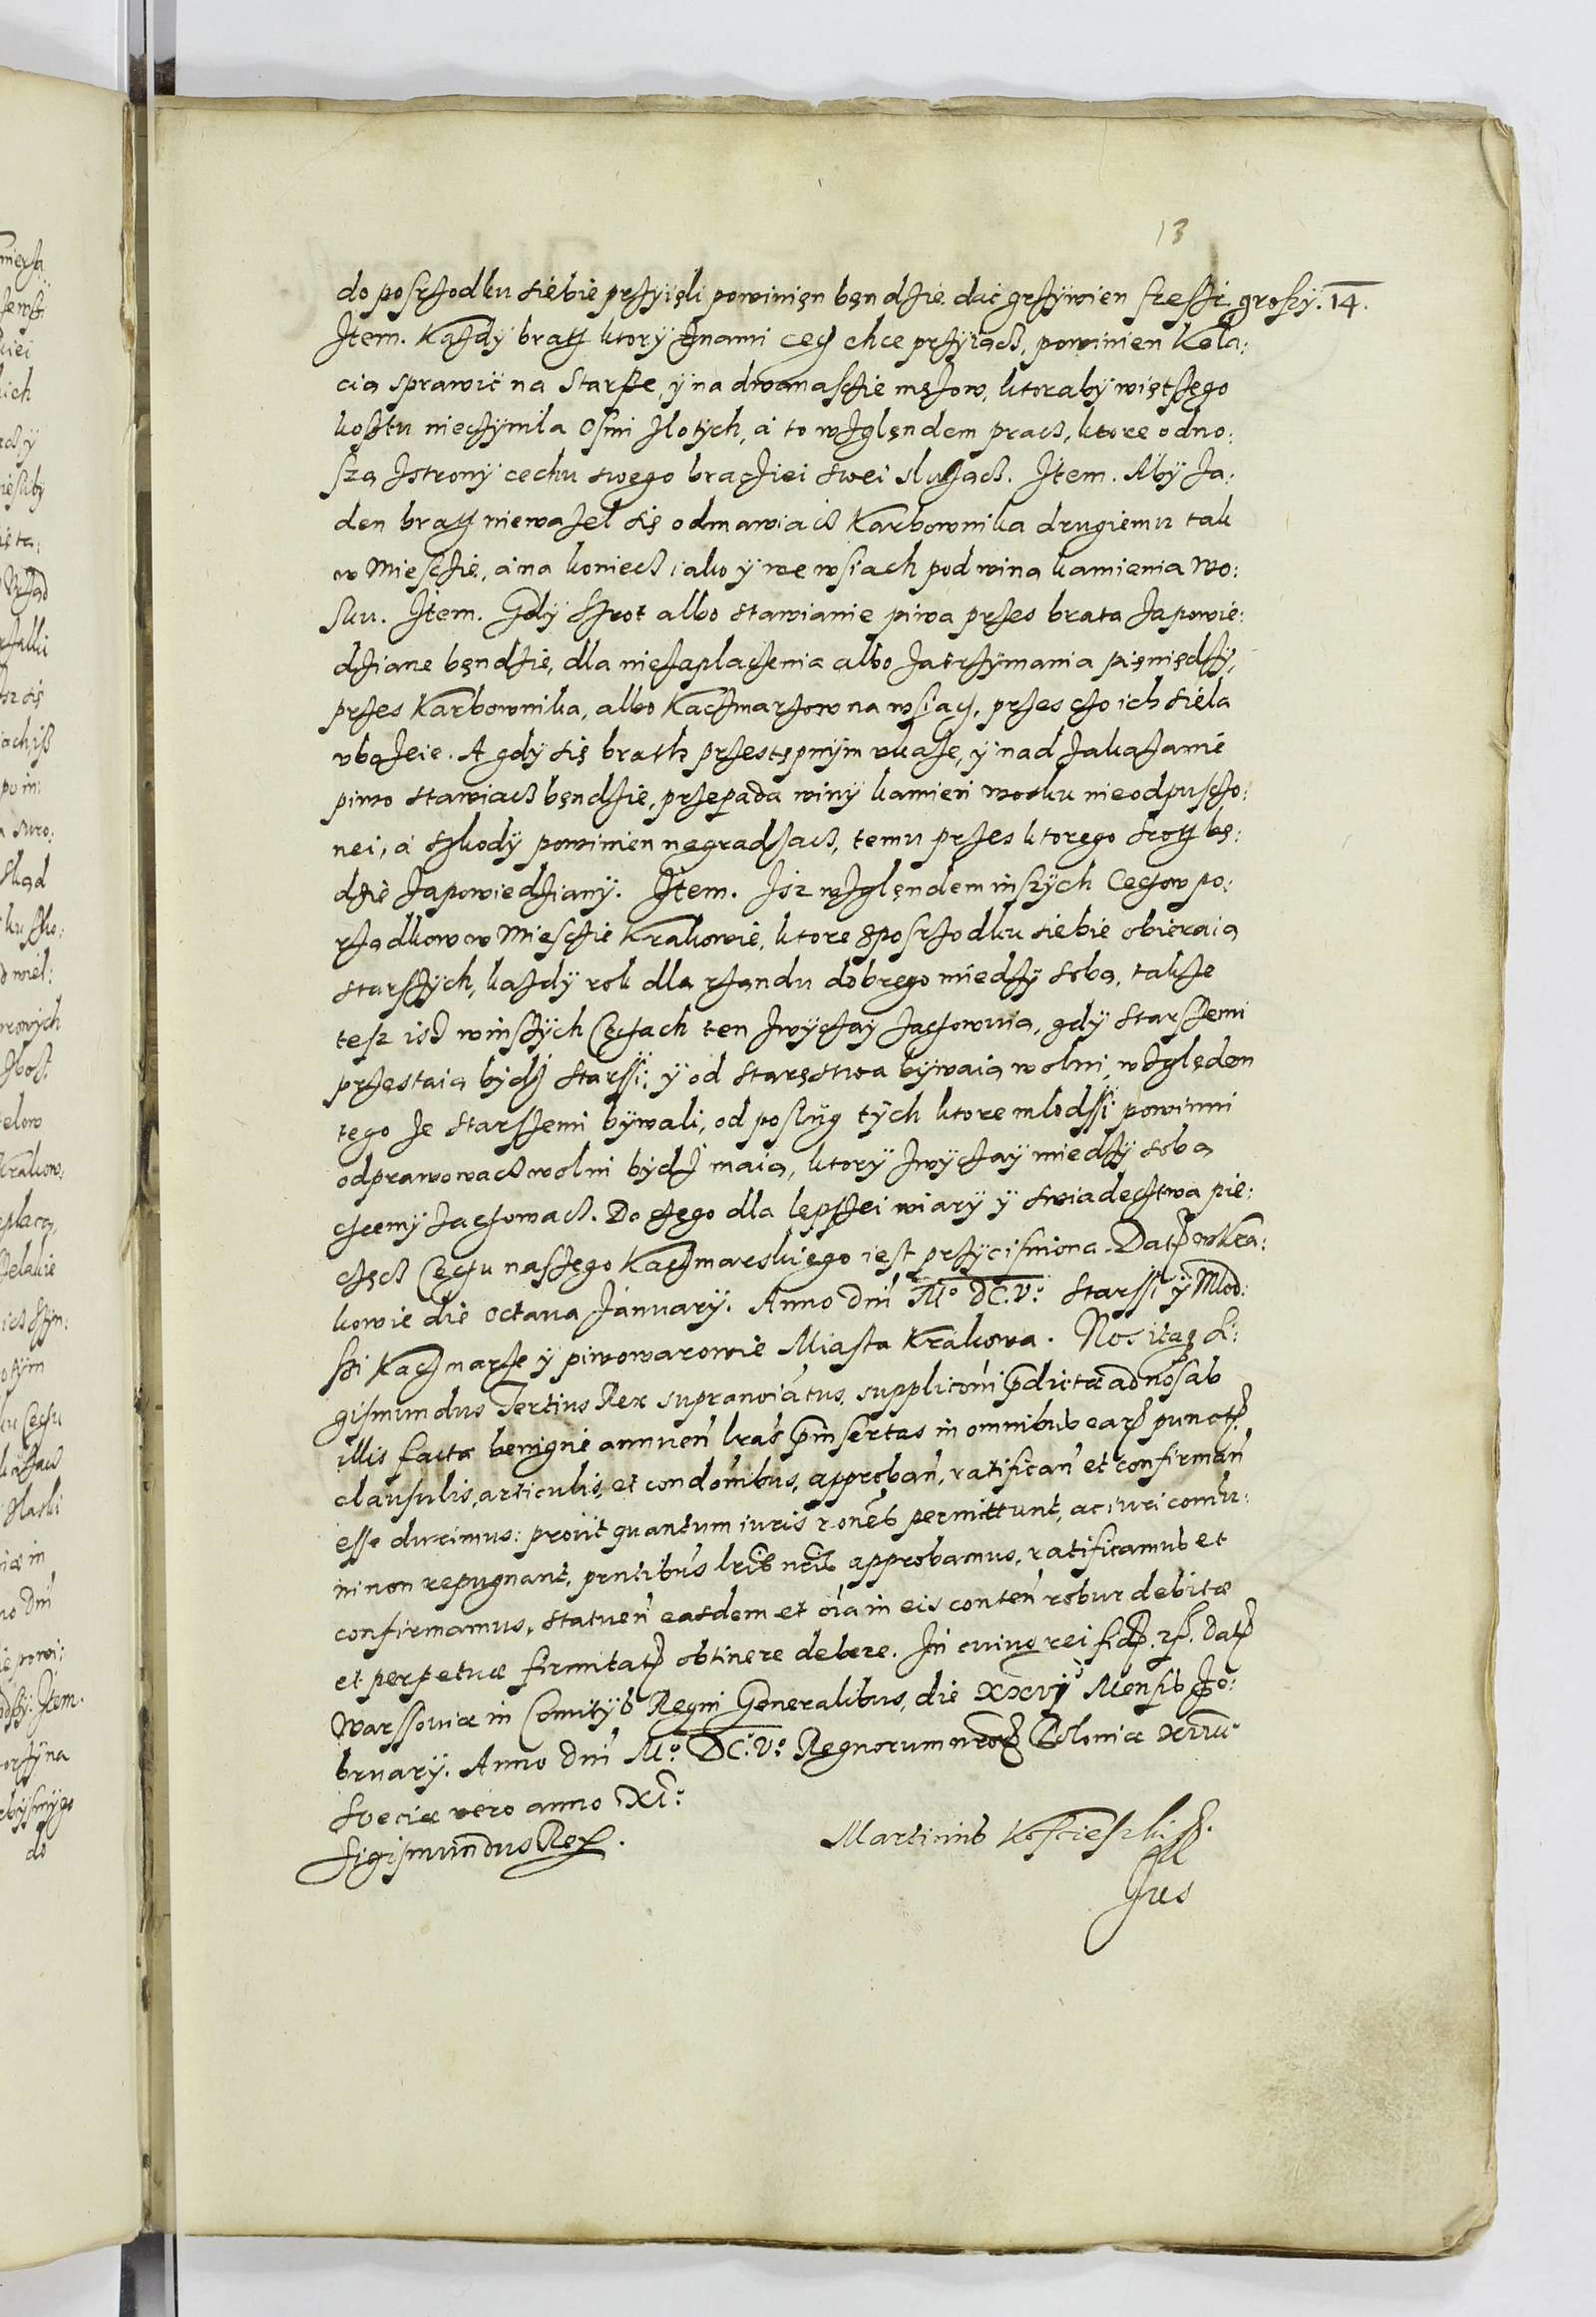 13
do posrzodku siebie przyięli powinięn będzie dać grzywien szesić groszy. 14.
Item. Kazdy bratt ktory znami cech chce przyiacz, powinien kola:
cią sprawić na Starsze, y na dwanascie męzow, ktoraby więtszego
kosztu nieczynila Osmi zlotych, a to wzglęndem pracz, ktore odno:
szą zstrony cechu swego braciiei swei sluzacz. Item. Aby za:
den bratt niewazel się odmawiacz Karbownika drugiemu tak
w Miescie, a na koniecz iako y we wsiach pod wina kamienia wo:
sku. Item. Gdy szrot albo stawianie piwa przes brata zapowie:
dziane bęndzie, dla niezaplaczenia albo zatrzymania pięniędzy,
przes Karbownika, albo Kaczmarzow na wsiach, przes czo ich siela
vbozeie. A gdy się brath przestępnym ukaze, y nad zakazanie
piwo stawiacz bęndzie, przepada winy kamien wosku nieodpuszczo:
nei, a szkody powinien nagradzacz, temu przes ktorego szrott bę:
dzie zapowiedziany. Item. Isz wzglęndem inszych Cechow po:
rządkow w Miescie Krakowie, ktore sposrzodku siebie obieraią
starszych, kazdy rok dla rzandu dobrego miedzy sobą, takze
tesz isz w inszych Cechach ten zwyczay zachowuią, gdy starszemi
przestaią bydz starssi, y od staręstwa bywaią wolni, względem
tego ze starszemi bywali, od poslug tych ktore mlodssi powinni
odprawowacz wolni bydz maią, ktory zwyczay miedzy sobą
chcemy zachowacz. Do czego dla lepszei wiary y swiadectwa pie:
częcz Cechu naszego Kaczmarskiego iest przycisniona. Dat w Kra:
kowie die octaua January. Anno Dni Mº DC. Vº. Starssi y Mlod:
ssi Kaczmarze y piwowarowie Miasta Krakowa. Nos itaq Si:
gismundus Tertius Rex supranoiatus, supplicõni pdictæ ad nos ab
illis factæ benigne annuen lras pinsertas in omnibus ear punct
clausulis, articulis, et condõnibus, approban, ratifican et confirman
esse duximus: prout quantum iuris rones permittunt, ac iuri comu:
ni non repugnant, prntibus lris nris approbamus, ratificamus et
confirmamus, statuen easdem et oia in eis conten robur debitæ
et perpetuæ firmitat obtinere debere. In cuius rei fid. rs. Dat
Warssoviæ in Comitys Regni Generalibus, die XXVI Mensis Fe:
bruary. Anno Dni Mº. DC. Vº. Regnorum nror Poloniæ XVIIIº
Sveciæ vero anno XIº.
Sigismundus Rex.
Martinus Koscieszki